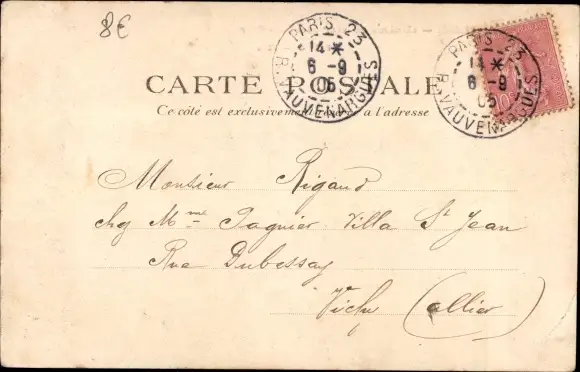 8€
PARIS 23
14 *
6 - 9
05
R. VAUVENARGUES
PARIS 23
14 *
6 - 9
05
R. VAUVENARGUES
CARTE POSTALE
Ce côté est exclusivement a l'adresse
Monsieur Rigaud
chg Mme Pagnier Villa St Jean
Rue Dubessay
Vichy (Allier)